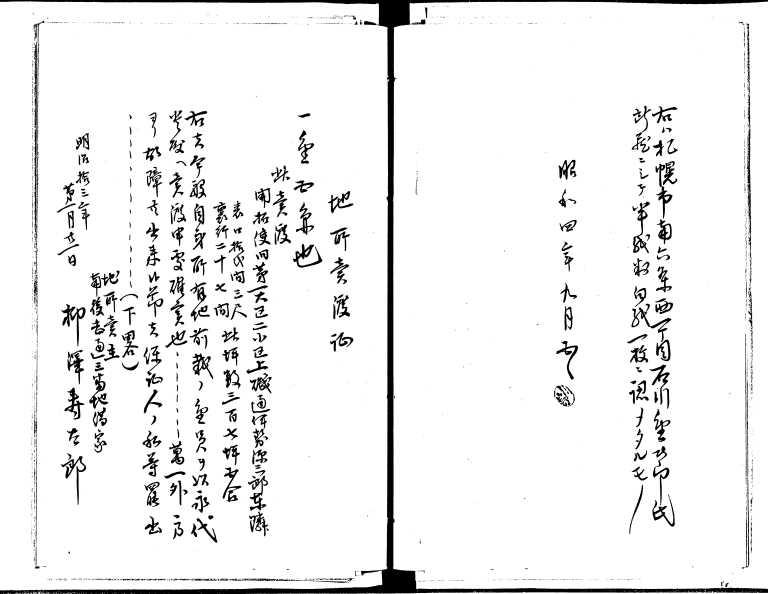 右ハ札幌市南六条西一丁目石川金次郎氏
所蔵ニシテ半紙数白紙一枚ニ認メタルモノ
昭和四年九月
地所売渡証
一金　也
此売渡
開拓使旧第一大区二小区上磯通伊勢源三郎東隣
表口拾弐間三尺
裏行二十七間　此坪数三百七坪五合
右者今般自身所有地前載ノ金員ヲ以永代
売渡申処確実也………萬一外方
ヨリ故障等出来候節者保証人ノ私等罷出
………(下略)
明治拾三年
第一月廿一日
地所売主
南後志通三番地借家
柳澤寿太郎